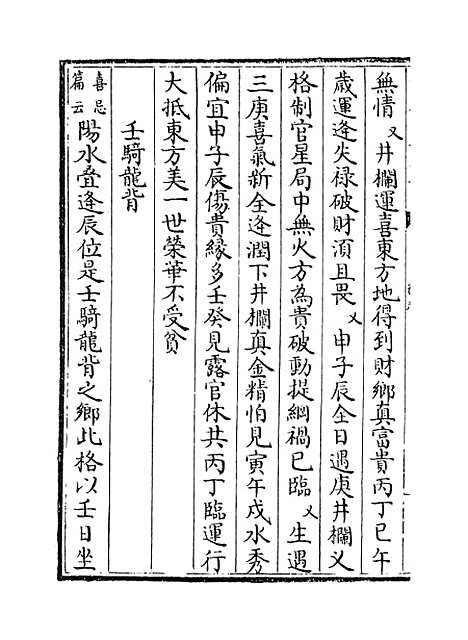 無情 又 井欄運喜東方地得到財鄉真富貴丙丁巳午
歲運逢失禄破財湏且畏 又 申子辰全日遇庚井欄乂
格制官星局中無火方為貴破動提綱禍已臨 又 生遇
三庚喜氣新全逢潤下井欄真金精怕見寅午戌水秀
偏宜申子辰傷貴緣多壬癸見露官休共丙丁臨運行
大抵東方美一世榮華不受貧
壬騎龍背
喜忌篇云 陽水疊逢辰位是壬騎龍背之鄉此格以壬日坐